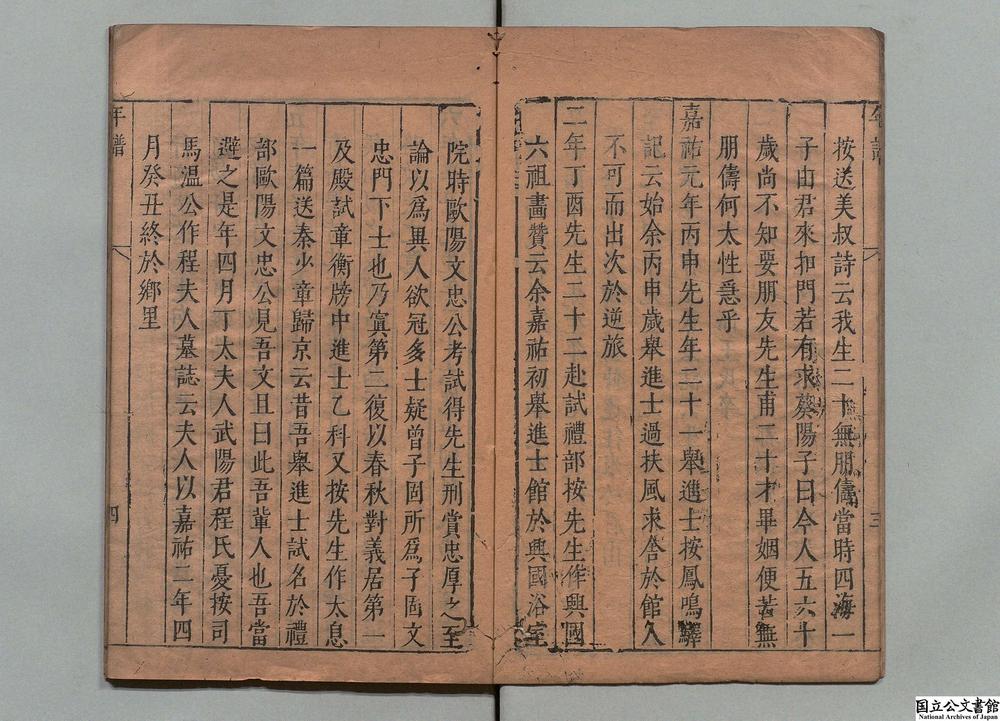 年譜
三
按送美叔詩云我生二十無朋儔當時四海一
子由君來扣門若有求蔡陽子曰今人五六十
歲尚不知要朋友先生甫二十才畢姻便苦無
朋儔何太性急乎
嘉祐元年丙申先生年二十一舉進士按鳳鳴驛
記云始余丙申歲舉進士過扶風求舍於館人
不可而出次於逆旅
二年丁酉先生二十二赴試禮部按先生作興國
六祖畫贊云余嘉祐初舉進士館於興國浴室
院時歐陽文忠公考試得先生刑賞忠厚之至
論以爲異人欲冠多士疑曾子固所爲子固文
忠門下士也乃寘第二復以春秋對義居第一
及殿試章衡牓中進士乙科又按先生作太息
一篇送秦少章歸京云昔吾舉進士試名於禮
部歐陽文忠公見吾文且曰此吾輩人也吾當
避之是年四月丁太夫人武陽君程氏憂按司
馬溫公作程夫人墓誌云夫人以嘉祐二年四
月癸丑終於鄉里
年譜
四
国立公文書館
National Archives of Japan